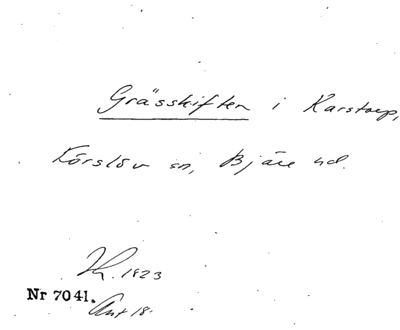 Grässkiften i Karstorp,
Förslöv sn, Bjäre hd.
K. 1823
Nr 7041.
Ant 18.